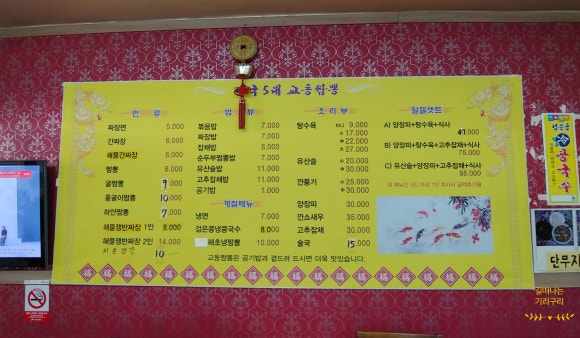 국 5대 교동짬뽕
면 류
짜장면 5.000
간짜장 6.000
해물간짜장 8.000
짬뽕 6.000
굴짬뽕 9.000
홍굴이짬뽕 10.000
하얀짬뽕 7.000
해물쟁반짜장 1인 8.000
해물쟁반짜장 2인 14.000
10
밥 류
볶음밥 7.000
짜장밥 7.000
잡채밥 8.000
순두부짬뽕밥 7.000
유산슬밥 11.000
고추잡채밥 11.000
공기밥 1.000
계절메뉴
냉면 7.000
검은콩냉콩국수 8.000
해초냉짬뽕 10.000
요 리 부
탕수육 미니 9.000
小 17.000
中 22.000
大 27.000
유산슬 小 20.000
中 30.000
깐풍기 小 25.000
中 30.000
양장피 30.000
깐쇼새우 35.000
고추잡채 30.000
술국 15.000
알뜰셋트
A) 양장피+탕수육+식사
47.000
B) 양장피+탕수육+고추잡채+식사
75.000
C) 유산슬+양장피+고추잡채+식사
95.000
교동짬뽕은 공기밥과 곁드려 드시면 더욱 맛있습니다.
福 福 福 福 福 福 福 福 福 福 福 福 福 福 福 福
검은콩
冷
콩국수
단무지
길떠나는
기리구리